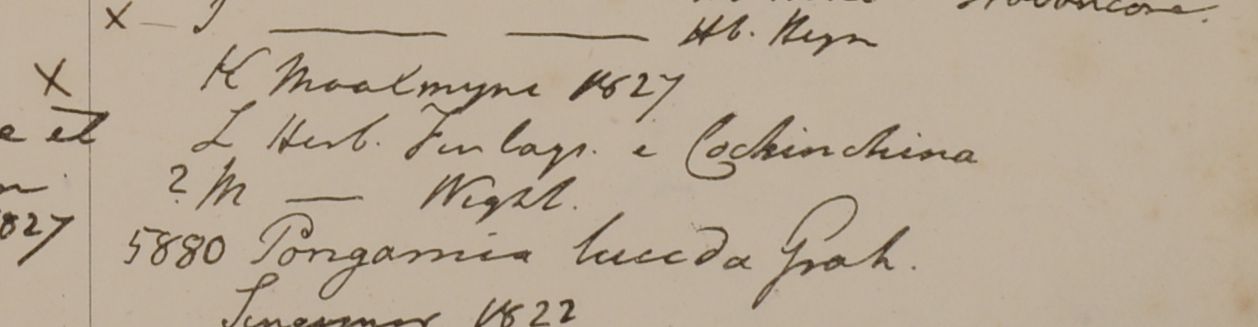 x — J ——— ——— Hb. Heyn
x K Moalmyne 1827
e et L Herb. Finlays. e Cochinchina
? M — Wight.
827 5880 Pongamia lucida Grah.
1822